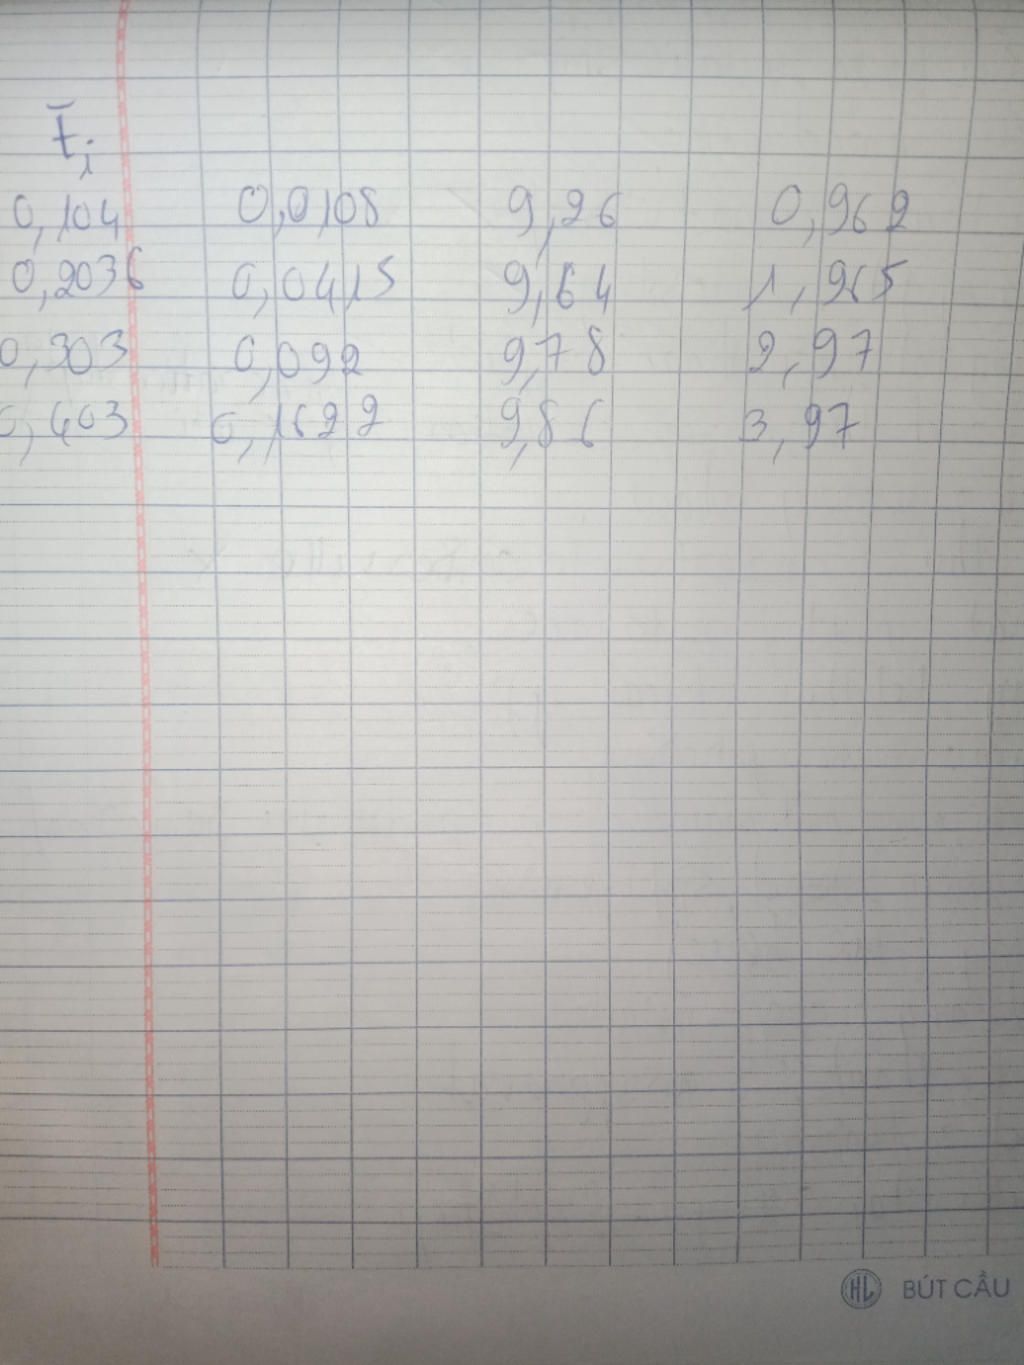 t̄ᵢ
0,104 0,0108 9,26 0,962
0,2036 0,0415 9,64 1,965
0,303 0,092 9,78 2,97
0,403 0,1622 9,86 3,97
HL BÚT CẦU